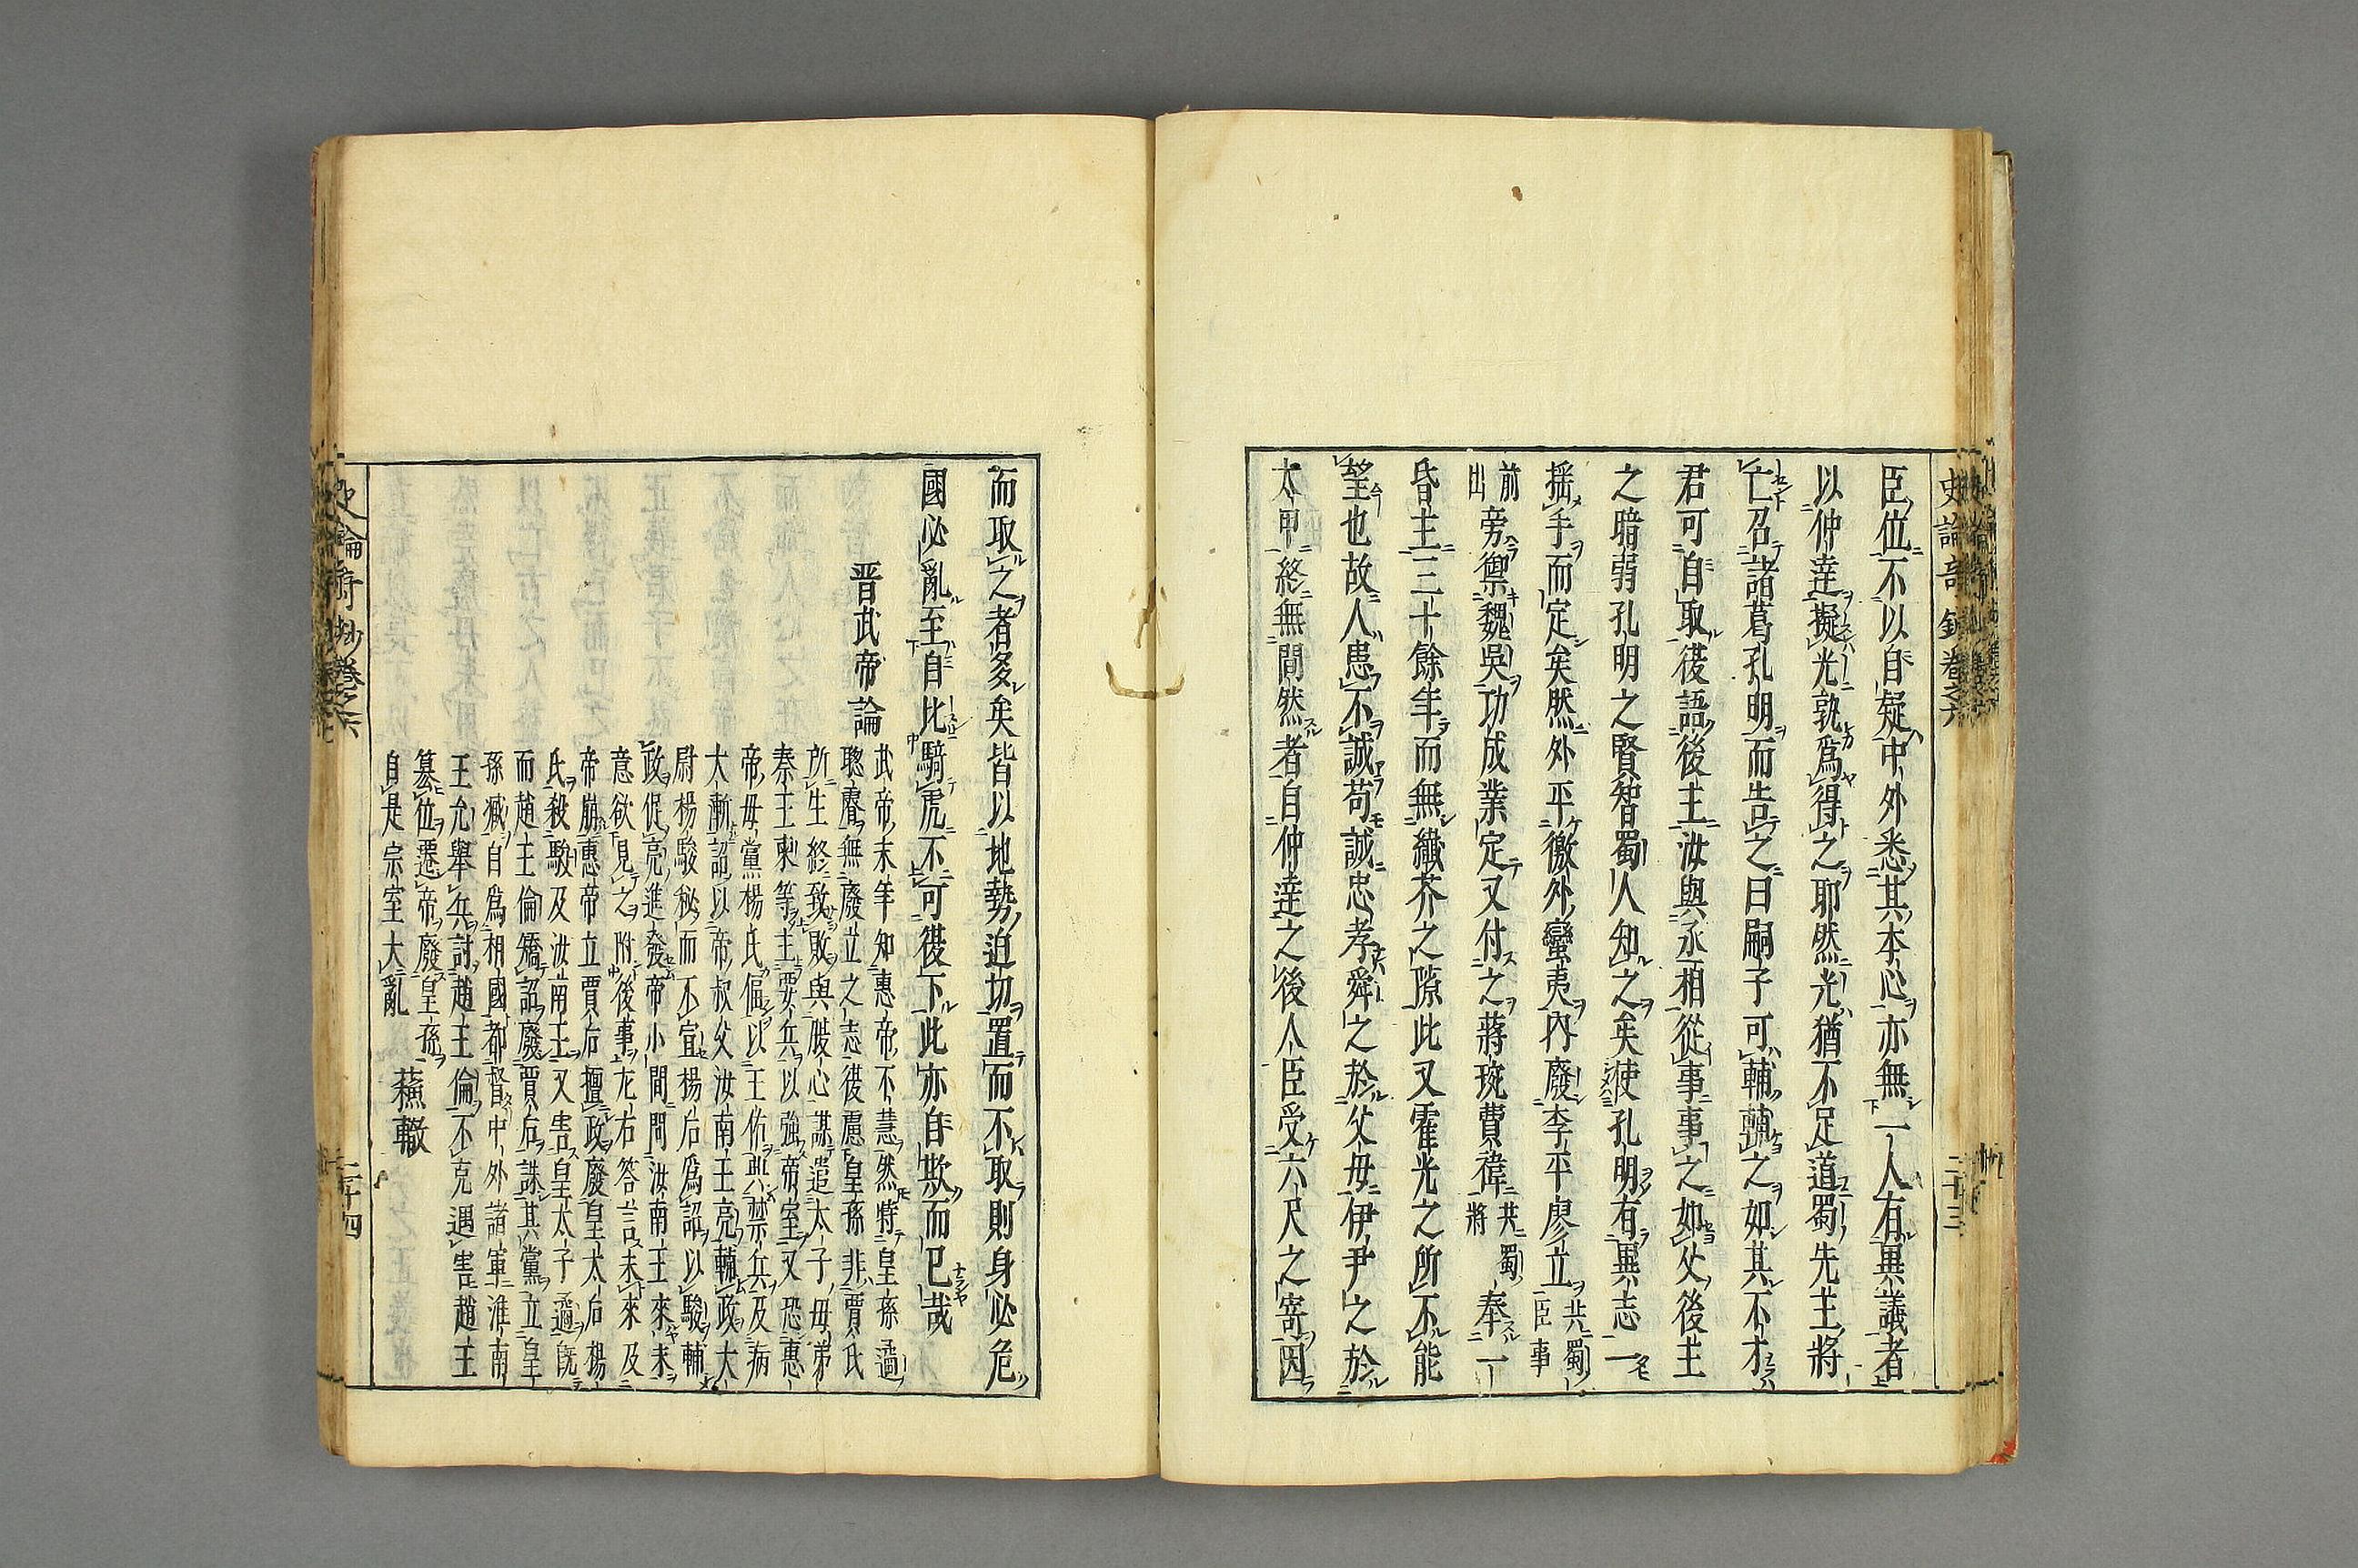 史論奇鈔卷之六 二十三
臣位不以自疑中外悉其本心亦無一人有異議者
以仲達擬光孰爲得之耶然光猶不足道蜀先主將
亡召諸葛孔明而告之曰嗣子可輔輔之如其不才
君可自取後語後主汝與丞相從事事之如父後主
之暗弱孔明之賢智蜀人知之矣使孔明有異志一
搖手而定矣然外平徼外蠻夷內廢李平廖立共蜀臣事
前出旁禦魏吳功成業定又付之蔣琬費禕共蜀將奉一
昏主三十餘年而無纖芥之隙此又霍光之所不能
望也故人患不誠苟誠忠孝舜之於父母伊尹之於
太甲終無間然者自仲達之後人臣受六尺之寄因
而取之者多矣皆以地勢迫切置而不取則身必危
國必亂至自比騎虎不可復下此亦自欺而已哉
晋武帝論
武帝末年知惠帝不慧然恃皇孫遹
聰睿無廢立之志復慮皇孫非賈氏
所生終致敗與腹心謀遣太子母弟
秦王柬等主要兵以強帝室又恐惠
帝母黨楊氏偪以王佑典禁兵及病
大漸詔以帝叔父汝南王亮輔政大
尉楊駿秘而不宣楊后爲詔以駿輔
政促亮進發帝小間問汝南王來未
意欲見之附後事左右答言未來及
帝崩惠帝立賈后擅政廢皇太后楊
氏殺駿及汝南王又害皇太子遹既
而趙王倫矯詔廢賈后誅其黨立皇
孫臧自爲相國都督中外諸軍淮南
王允舉兵討趙王倫不克遇害趙王
簒位遷帝廢皇孫
自是宗室大亂 蘇轍
史論奇抄卷之六 二十四